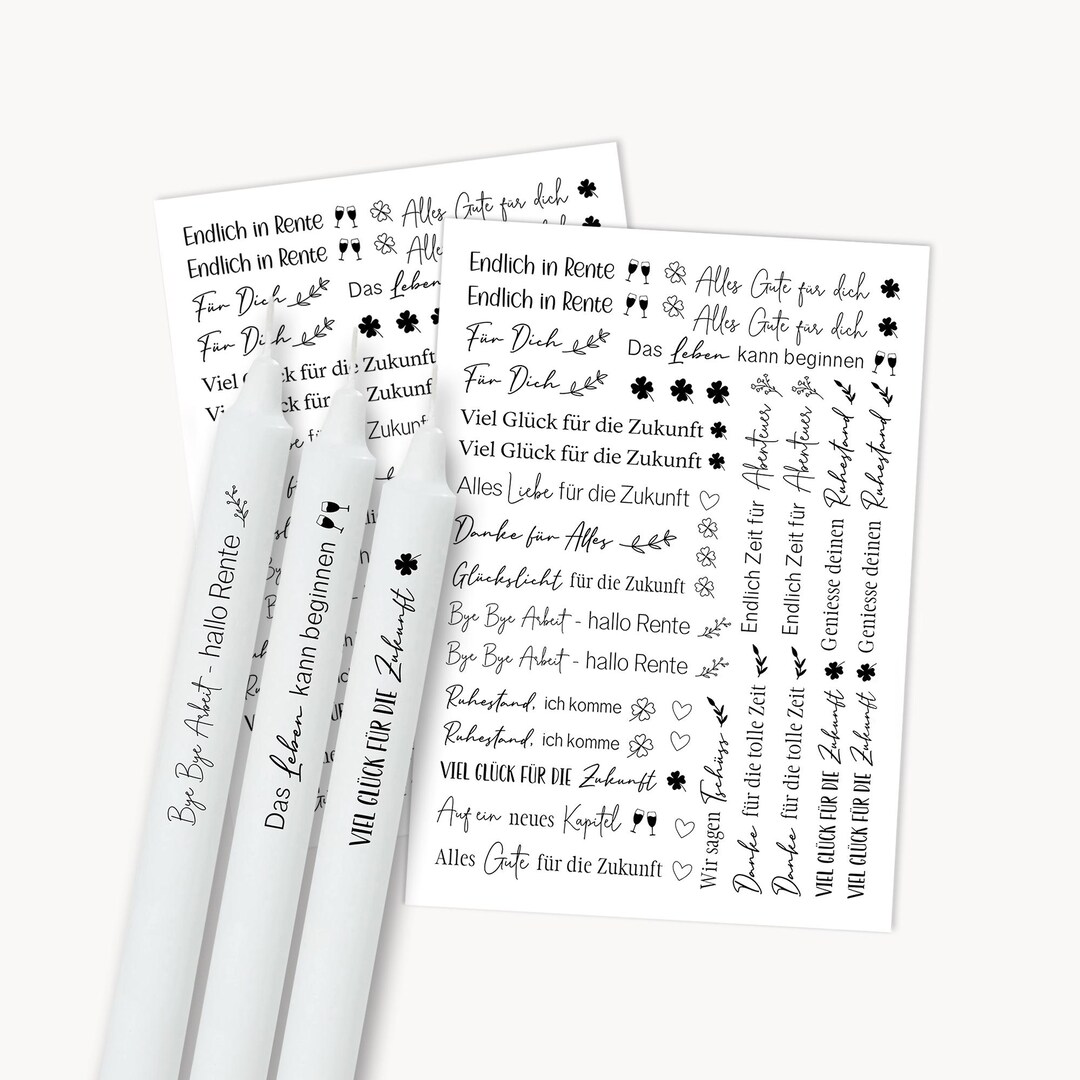 Endlich in Rente
Alles Gute für dich
Endlich in Rente
Alle
Für Dich
Das Leben
Für Dich
Viel ck für die Zukunft
ck für
Zukunf
Zukunf
Bye Bye Arbeit - hallo Rente
Das Leben kann beginnen
VIEL GLÜCK FÜR DIE Zukunft
Endlich in Rente
Alles Gute für dich
Endlich in Rente
Alles Gute für dich
Für Dich
Das Leben kann beginnen
Für Dich
Viel Glück für die Zukunft
Viel Glück für die Zukunft
Alles Liebe für die Zukunft
Danke für Alles
Glückslicht für die Zukunft
Bye Bye Arbeit - hallo Rente
Bye Bye Arbeit - hallo Rente
Ruhestand, ich komme
Ruhestand, ich komme
VIEL GLÜCK FÜR DIE Zukunft
Auf ein neues Kapitel
Alles Gute für die Zukunft
Endlich Zeit für Abenteuer
Endlich Zeit für Abenteuer
Geniesse deinen Ruhestand
Geniesse deinen Ruhestand
Wir sagen Tschüss
Danke für die tolle Zeit
Danke für die tolle Zeit
VIEL GLÜCK FÜR DIE Zukunft
VIEL GLÜCK FÜR DIE Zukunft